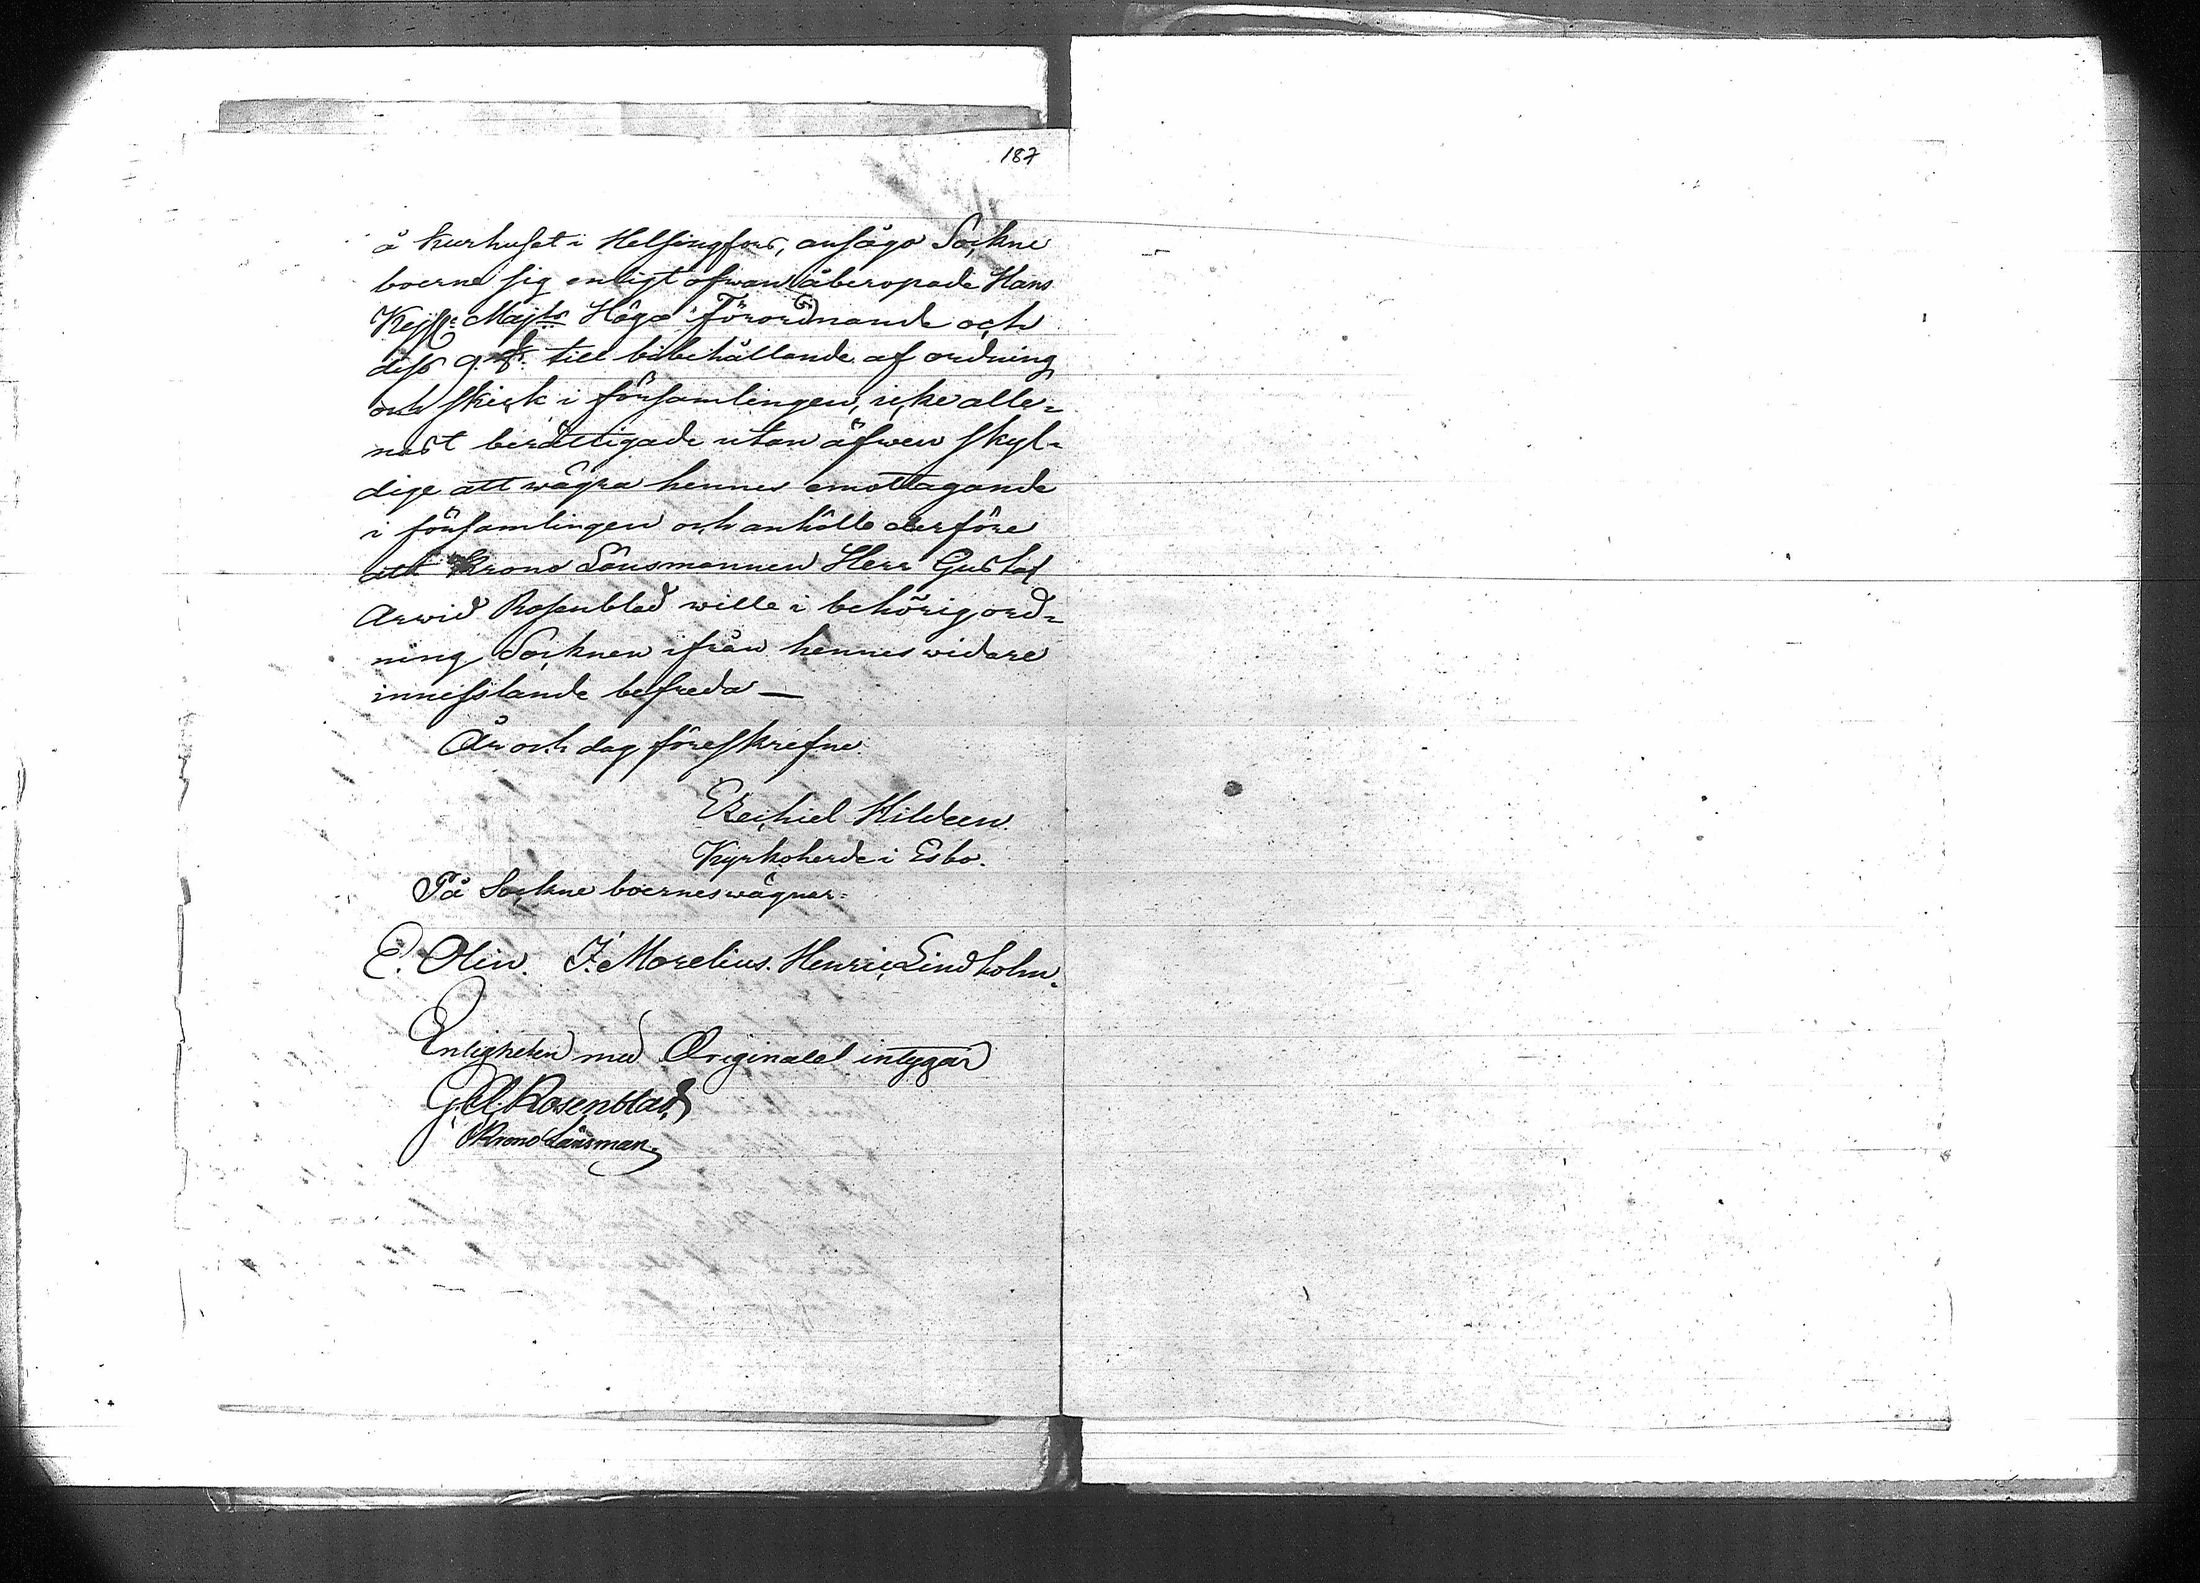 187
å kurhuset i Helsingfors, ansågo Sockne
boerne sig enligt ofwan åberopade Hans
Kejs: Majts Höga Förordnande och
dess 9. §. till bibehållande af ordning
och skick i församlingen, icke alle=
nast berättigade utan äfwen skyl=
dige att wägra hennes emottagande
i församlingen och anhölle derföre
att Krono Länsmannen Herr Gustaf
Arwid Rosenblad wille i behörig ord=
ning Socknen ifrån hennes widare
innefstande befreda —
År och dag föreskrefne.
Ezechiel Hildeen.
Kyrkoherde i Esbo.
På Sockne boernes wägnar:
E. Olin. J. Morelius. Henric Lindholm.
Enligheten med Originalet intygar
G. A. Rosenblad,
Krono Länsman.